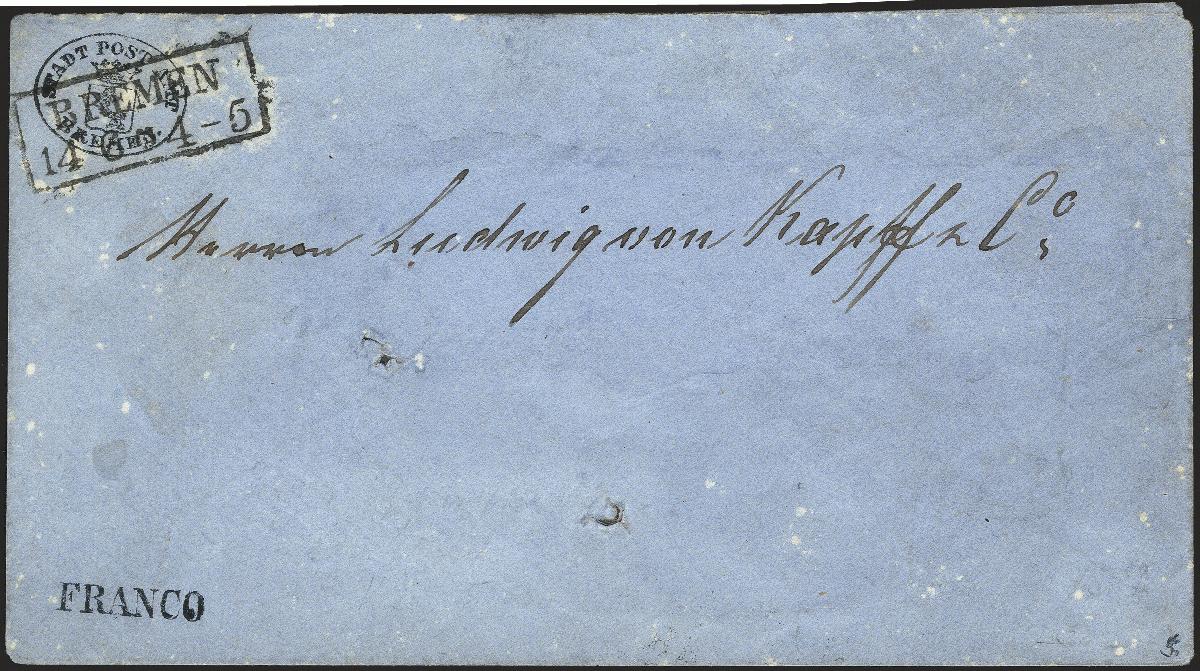 STADT POST AMT
BREMEN.
BREMEN
14 6 4-5
Herren Ludwig von Kapff & Co.
FRANCO